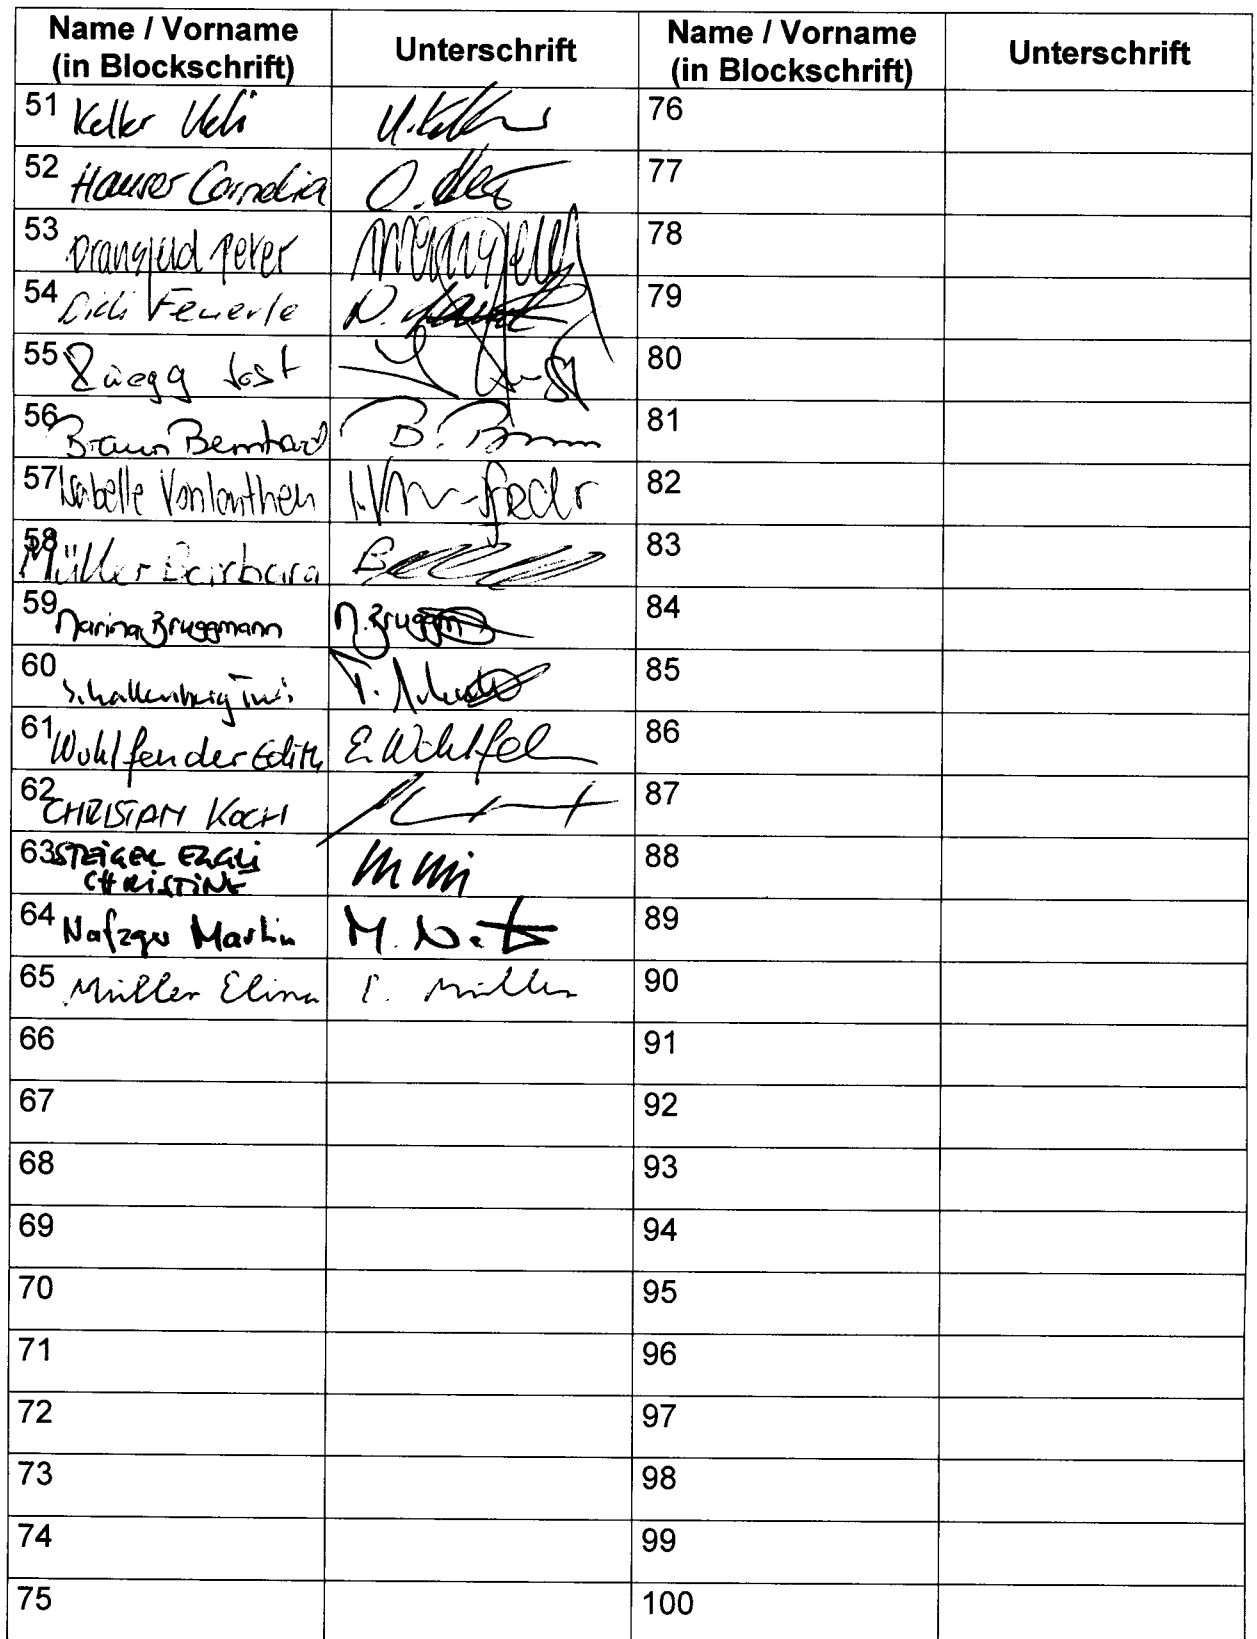 Name / Vorname
(in Blockschrift)
Unterschrift
Name / Vorname
(in Blockschrift)
Unterschrift
51 Keller Ueli U. Keller
76
52 Hauser Cornelia
77
53 Dransfeld Peter
78
54 Didi Feuerle
79
55 Rüegg Jost
80
56 Braun Bernhard B. Braun
81
57 Isabelle Vonlanthen
82
58 Müller Barbara
83
59 Marina Bruggmann M. Bruggm
84
60 Schallenberg Turi
85
61 Wohlfender Edith E. Wohlfe
86
62 CHRISTIAN KOCH
87
63 STEIGER EGGLI
CHRISTINE
88
64 Nafzger Martin
89
65 Müller Elina E. Müller
90
66
91
67
92
68
93
69
94
70
95
71
96
72
97
73
98
74
99
75
100